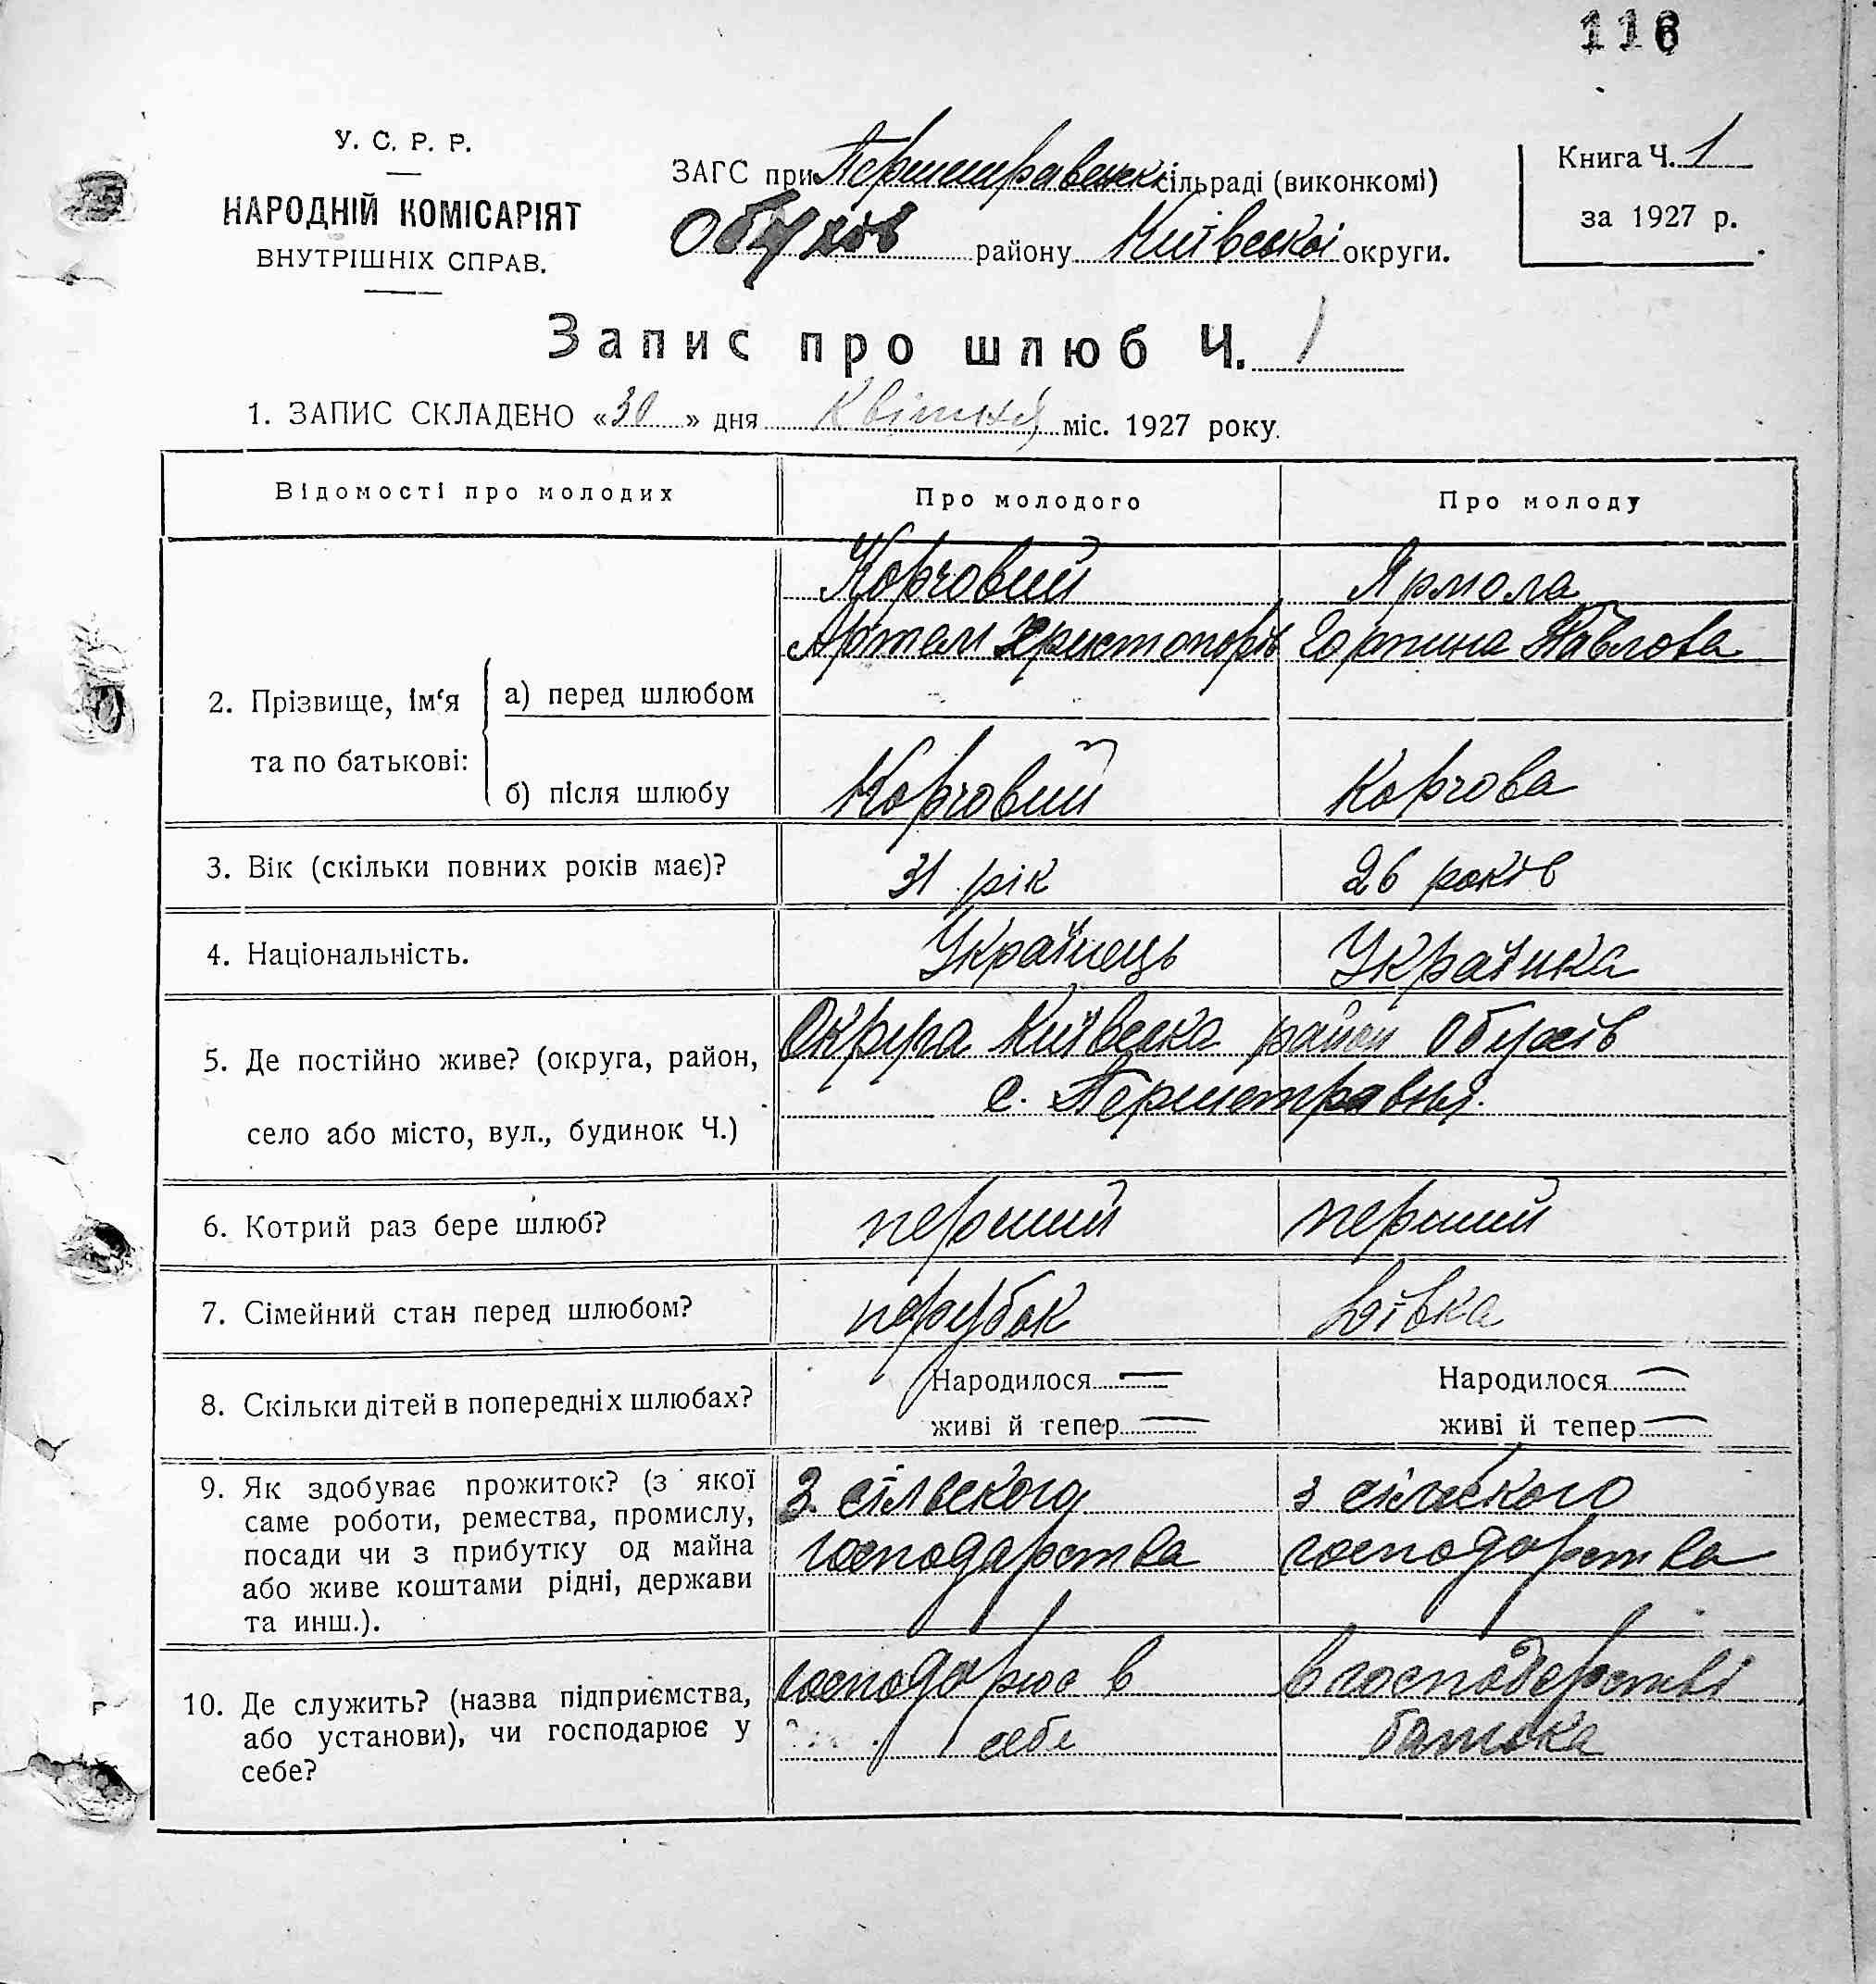 116
У. С. Р. Р.
НАРОДНІЙ КОМІСАРІЯТ
ВНУТРІШНІХ СПРАВ.
ЗАГС при Першотравенск сільраді (виконкомі)
Обухів району Київської округи.
Книга Ч. 1
за 1927 р.
Запис про шлюб Ч. 1
1. ЗАПИС СКЛАДЕНО «30» дня Квітня міс. 1927 року.
Відомості про молодих
Про молодого
Про молоду
2. Прізвище, ім‘я
та по батькові:
а) перед шлюбом
Корчовий
Артем Христопорів
Ярмола
Горпина Павлова
б) після шлюбу
Корчовий
Корчова
3. Вік (скільки повних років має)?
31 рік
26 років
4. Національність.
Українець
Українка
5. Де постійно живе? (округа, район,
село або місто, вул., будинок Ч.)
Округа Київська район Обухів
с. Першотравня.
6. Котрий раз бере шлюб?
перший
перший
7. Сімейний стан перед шлюбом?
парубок
дівка
8. Скільки дітей в попередніх шлюбах?
Народилося —
живі й тепер —
Народилося —
живі й тепер —
9. Як здобуває прожиток? (з якої
саме роботи, ремества, промислу,
посади чи з прибутку од майна
або живе коштами рідні, держави
та инш.).
З сільского
господарства
з сільского
господарства
10. Де служить? (назва підприємства,
або установи), чи господарює у
себе?
господарює в
себе
в господарстві
батька